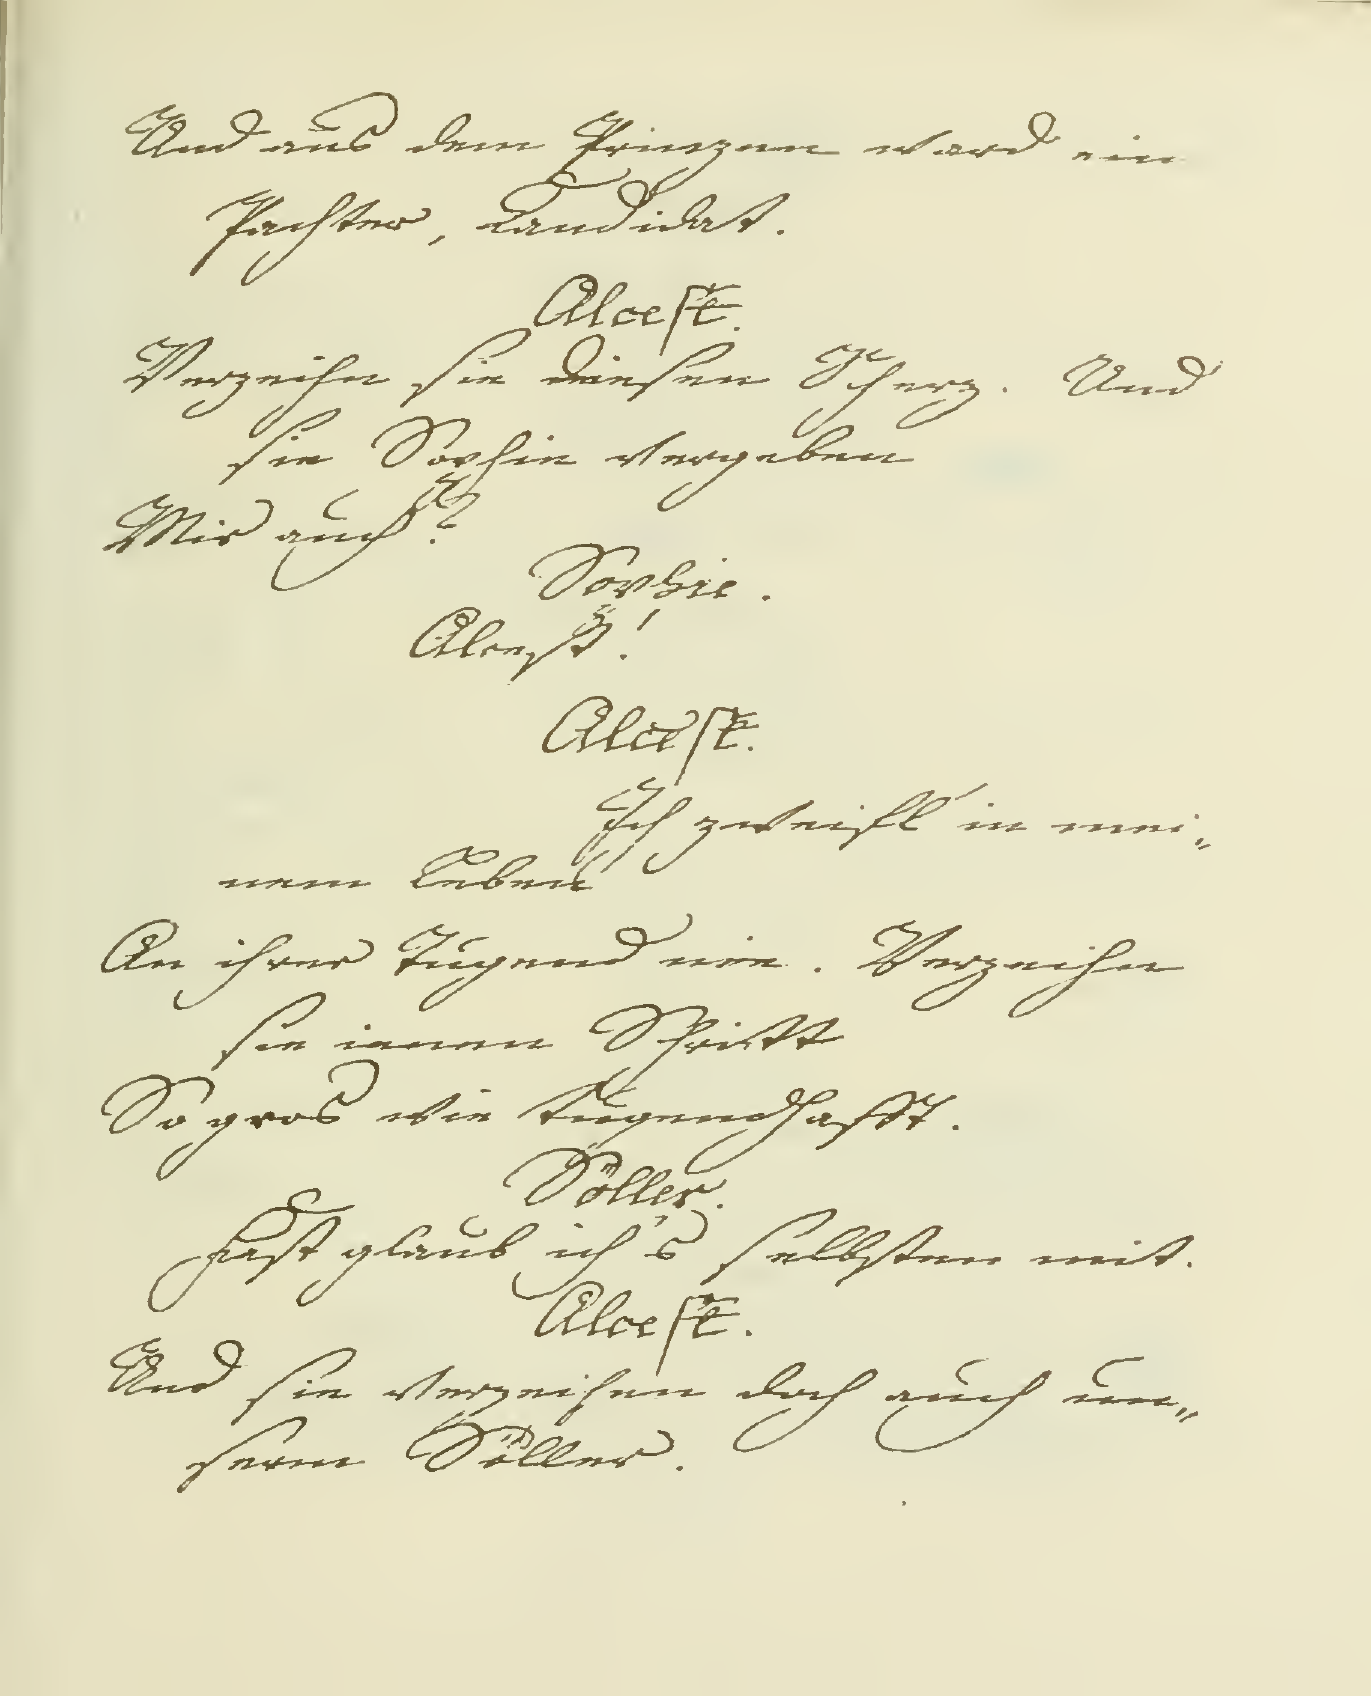 Und aus dem Prinzen ward ein
Pachter, Candidat.
Alcest.
Verzeihn sie diesen Scherz. Und
sie Sophie vergeben
Mir auch?
Sophie.
Alcest!
Alcest.
Ich zweifl' in mei„
nem Leben
An ihrer Tugend nie. Verzeihn
sie ienen Schritt
So gros wie tugendhafft.
Söller.
Fast glaub ich's selbsten mit.
Alcest.
Und sie verzeihen doch auch un„
serm Söller.